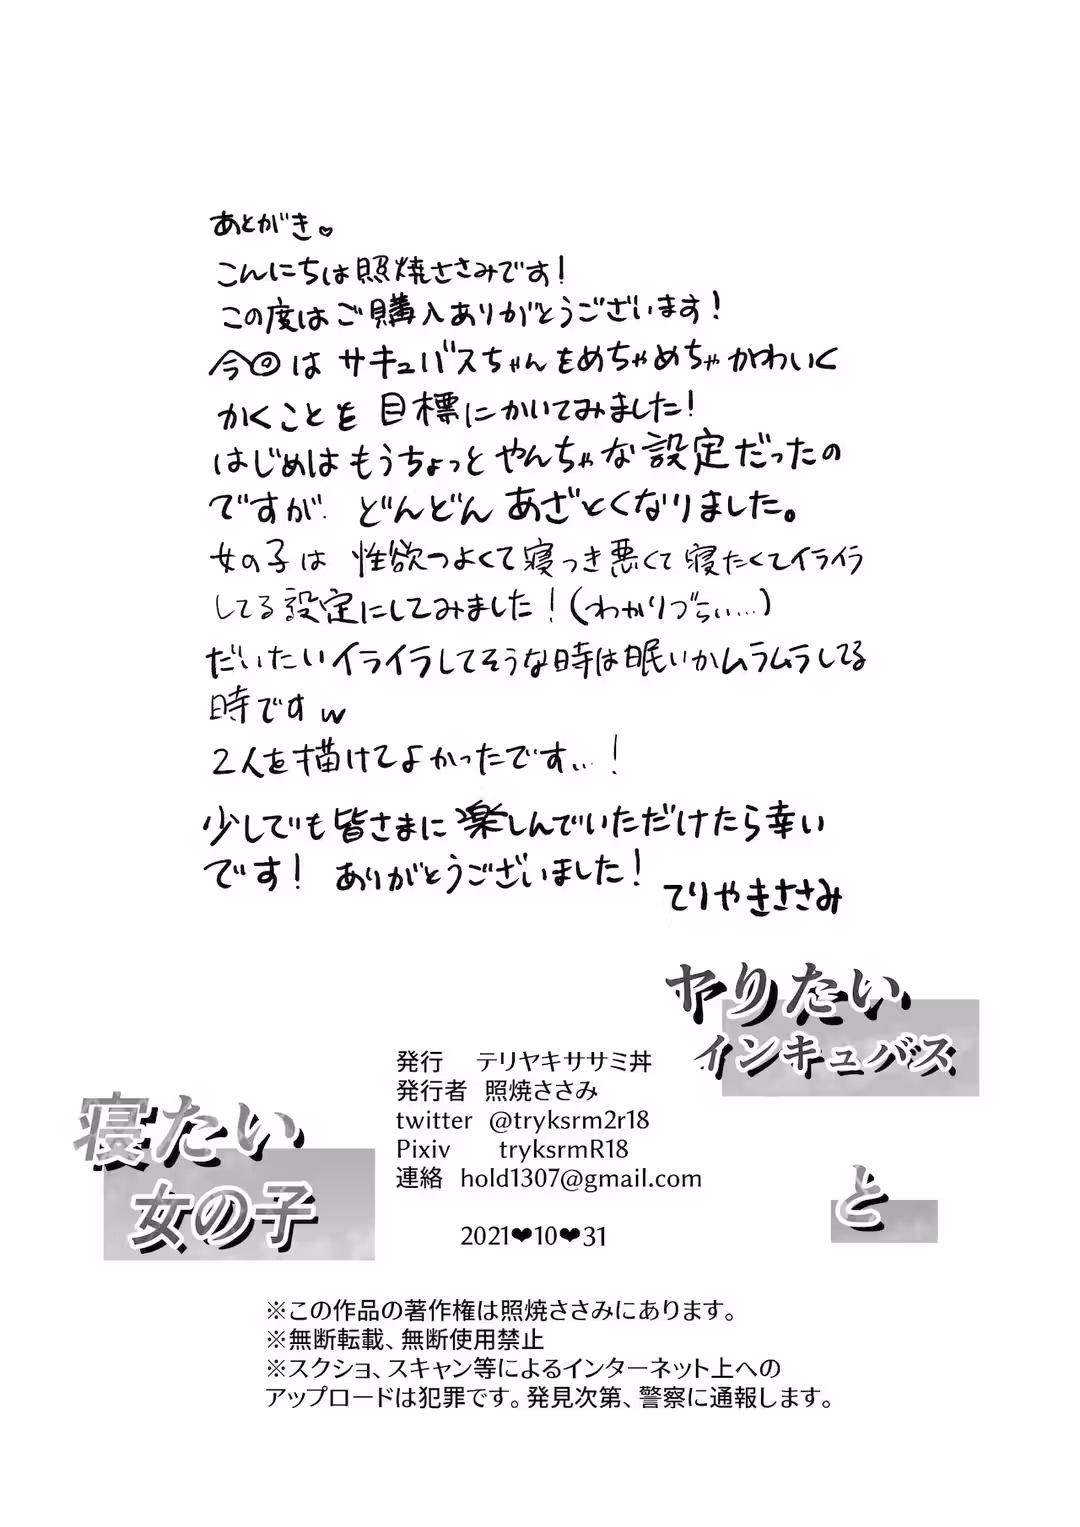 あとがき♥
こんにちは照焼ささみです!
この度はご購入ありがとうございます!
今回は サキュバスちゃんをめちゃめちゃかわいく
かくことを 目標にかいてみました!
はじめはもうちょっとやんちゃな設定だったの
ですが どんどん あざとくなりました。
女の子は 性欲つよくて寝つき悪くて寝たくてイライラ
してる設定にしてみました!(わかりづらい…)
だいたいイライラしてそうな時は眠いかムラムラしてる
時ですw
2人を描けてよかったです…!
少しでも皆さまに楽しんでいただけたら幸い
です! ありがとうございました!
てりやきささみ
ヤりたい
インキュバス
と
寝たい
女の子
発行 テリヤキササミ丼
発行者 照焼ささみ
twitter @tryksrm2r18
Pixiv tryksrmR18
連絡 hold1307@gmail.com
2021❤10❤31
※この作品の著作権は照焼ささみにあります。
※無断転載、無断使用禁止
※スクショ、スキャン等によるインターネット上への
アップロードは犯罪です。発見次第、警察に通報します。